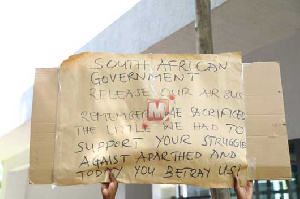 SOUTH AFRICAN
GOVERNMENT
RELEASE OUR AIRBUS
REMEMBER WE SACRIFICED
THE LITTLE WE HAD TO
SUPPORT YOUR STRUGGLE
AGAIST APARTHED AND
TODAY YOU BETRAY US!
M